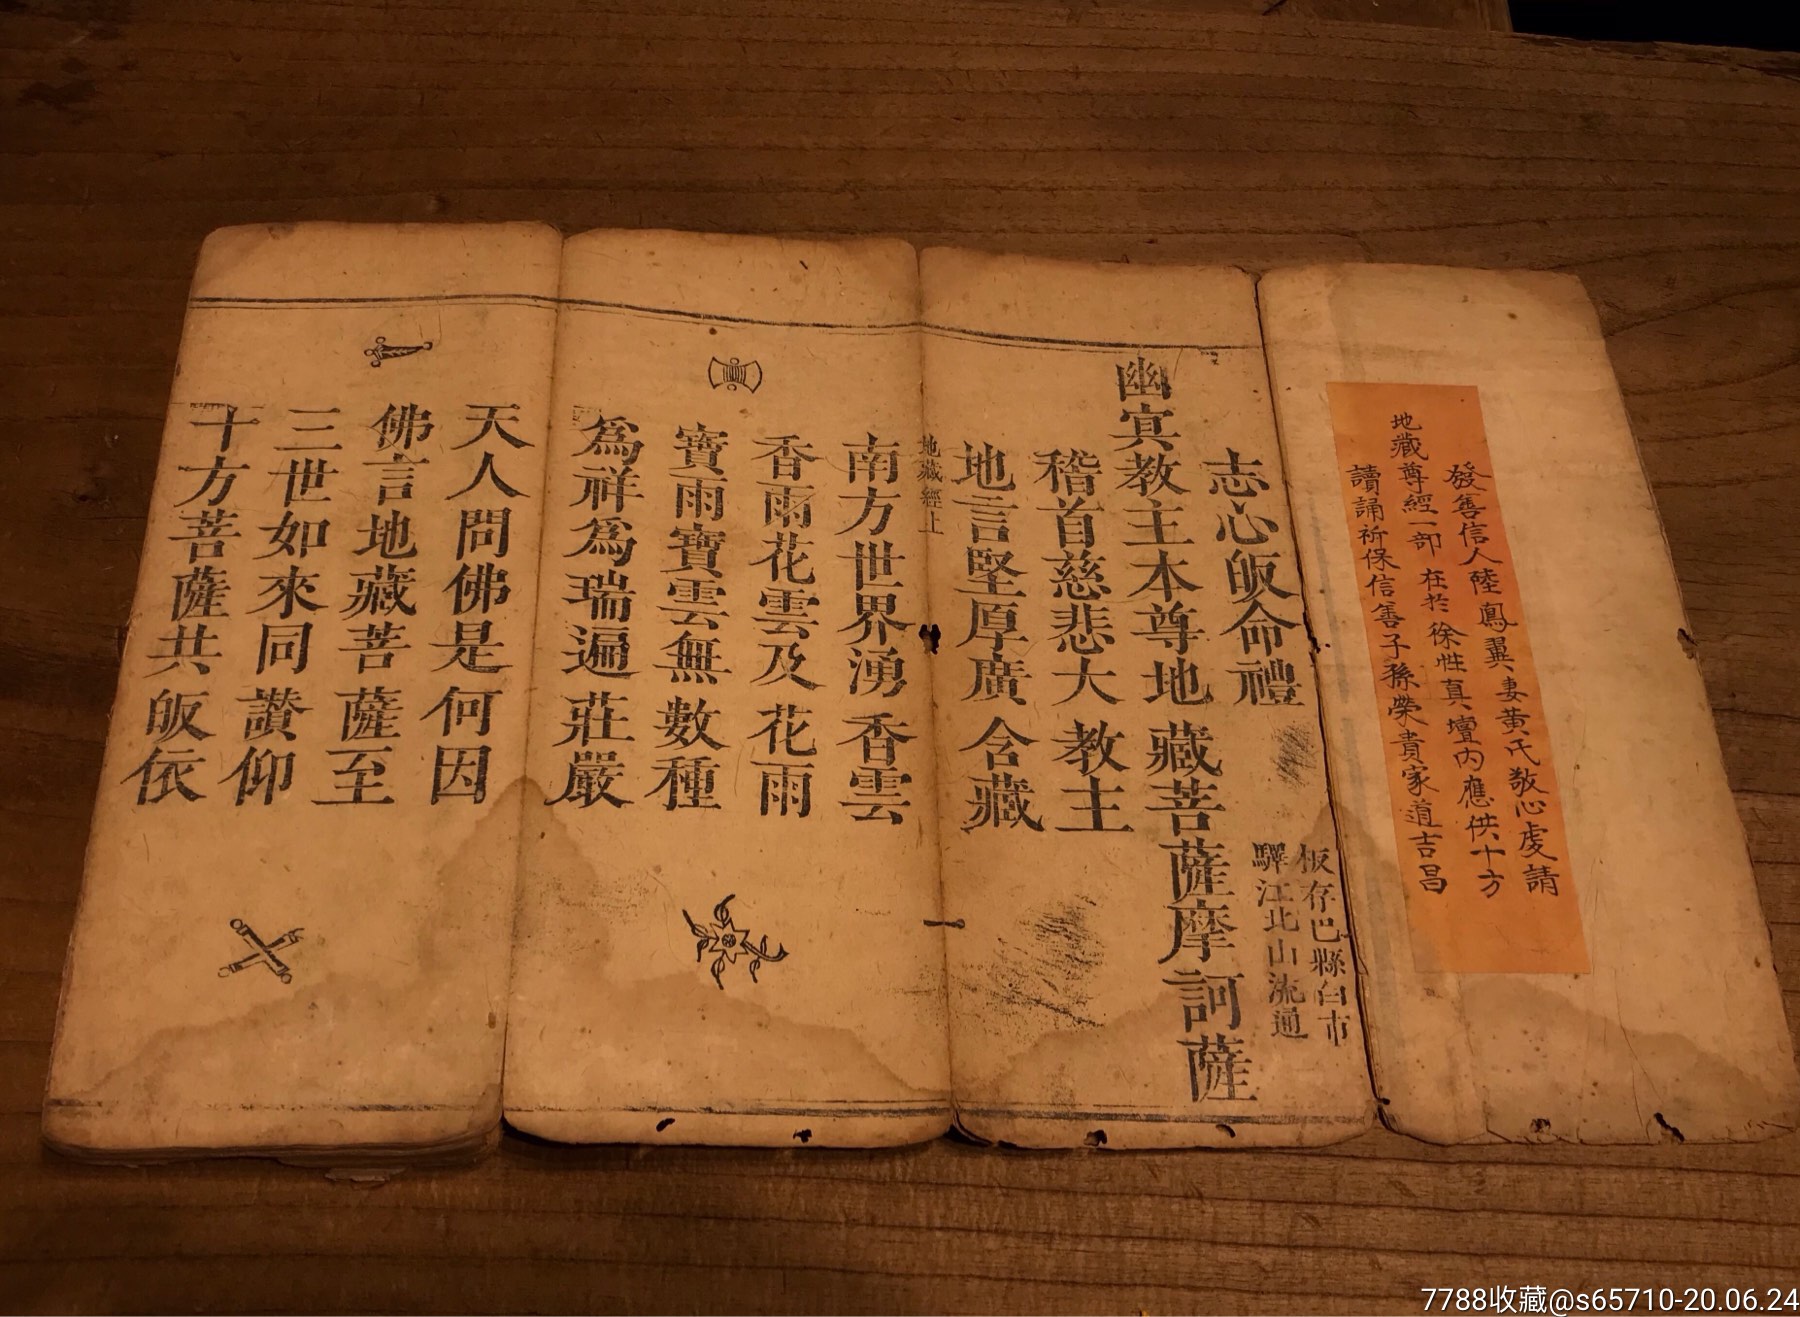 發善信人陸鳳翼妻黃氏敬心虔請
地藏尊經一部在於徐性真壇內應供十方
讀誦祈保信善子孫榮貴家道吉昌
板存巴縣白市
驛江北山流通
志心皈命禮
幽冥教主本尊地藏菩薩摩訶薩
稽首慈悲大教主
地言堅厚廣含藏
地藏經上
南方世界湧香雲
香雨花雲及花雨
寶雨寶雲無數種
為祥為瑞遍莊嚴
天人問佛是何因
佛言地藏菩薩至
三世如來同讚仰
十方菩薩共皈依
7788收藏@s65710-20.06.24